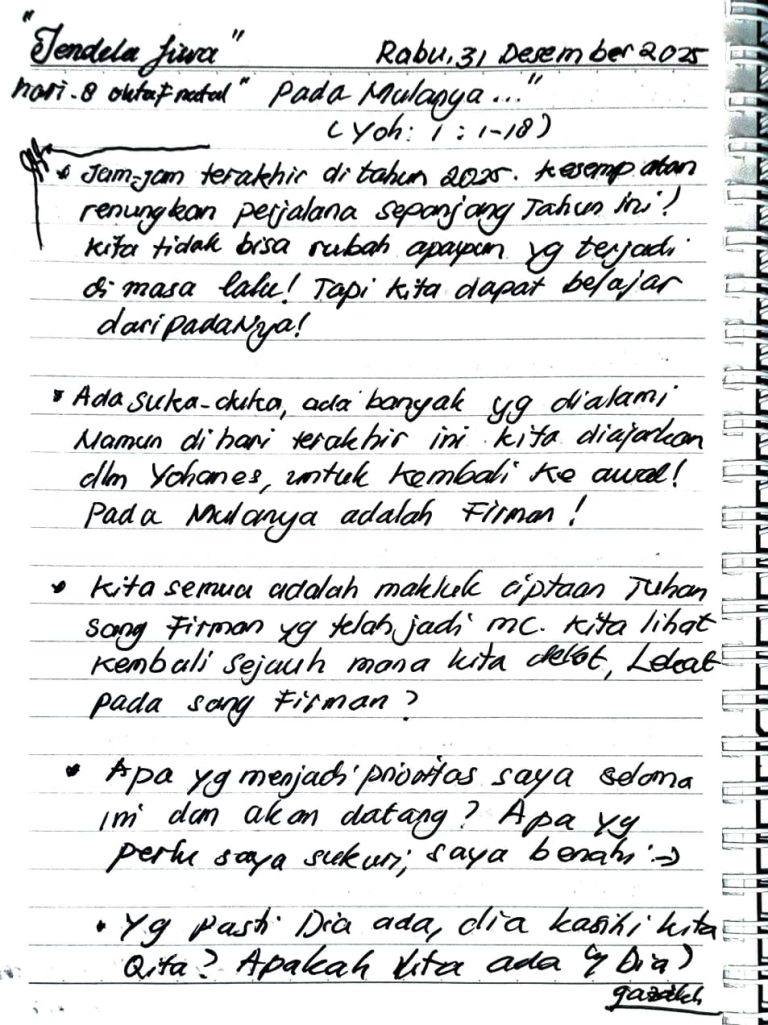 "Jendela Jiwa" Rabu, 31 Desember 2025
hari-8 oktaf natal "Pada Mulanya..."
(Yoh: 1: 1-18)
• Jam-jam terakhir di tahun 2025. Kesempatan
renungkan perjalana sepanjang Tahun ini!
Kita tidak bisa rubah apapun yg terjadi
di masa lalu! Tapi kita dapat belajar
daripadaNya!
• Ada suka-duka, ada banyak yg dialami
Namun di hari terakhir ini kita diajarkan
dlm Yohanes, untuk kembali ke awal!
Pada Mulanya adalah Firman!
• Kita semua adalah makluk ciptaan Tuhan
sang Firman yg telah jadi mc. Kita lihat
kembali sejauh mana kita dekat, Lekat
pada sang Firman?
• Apa yg menjadi prioritas saya selama
ini dan akan datang? Apa yg
perlu saya sukuri, saya benahi →
• Yg pasti Dia ada, dia kasihi kita
Qita? Apakah kita ada Dia?